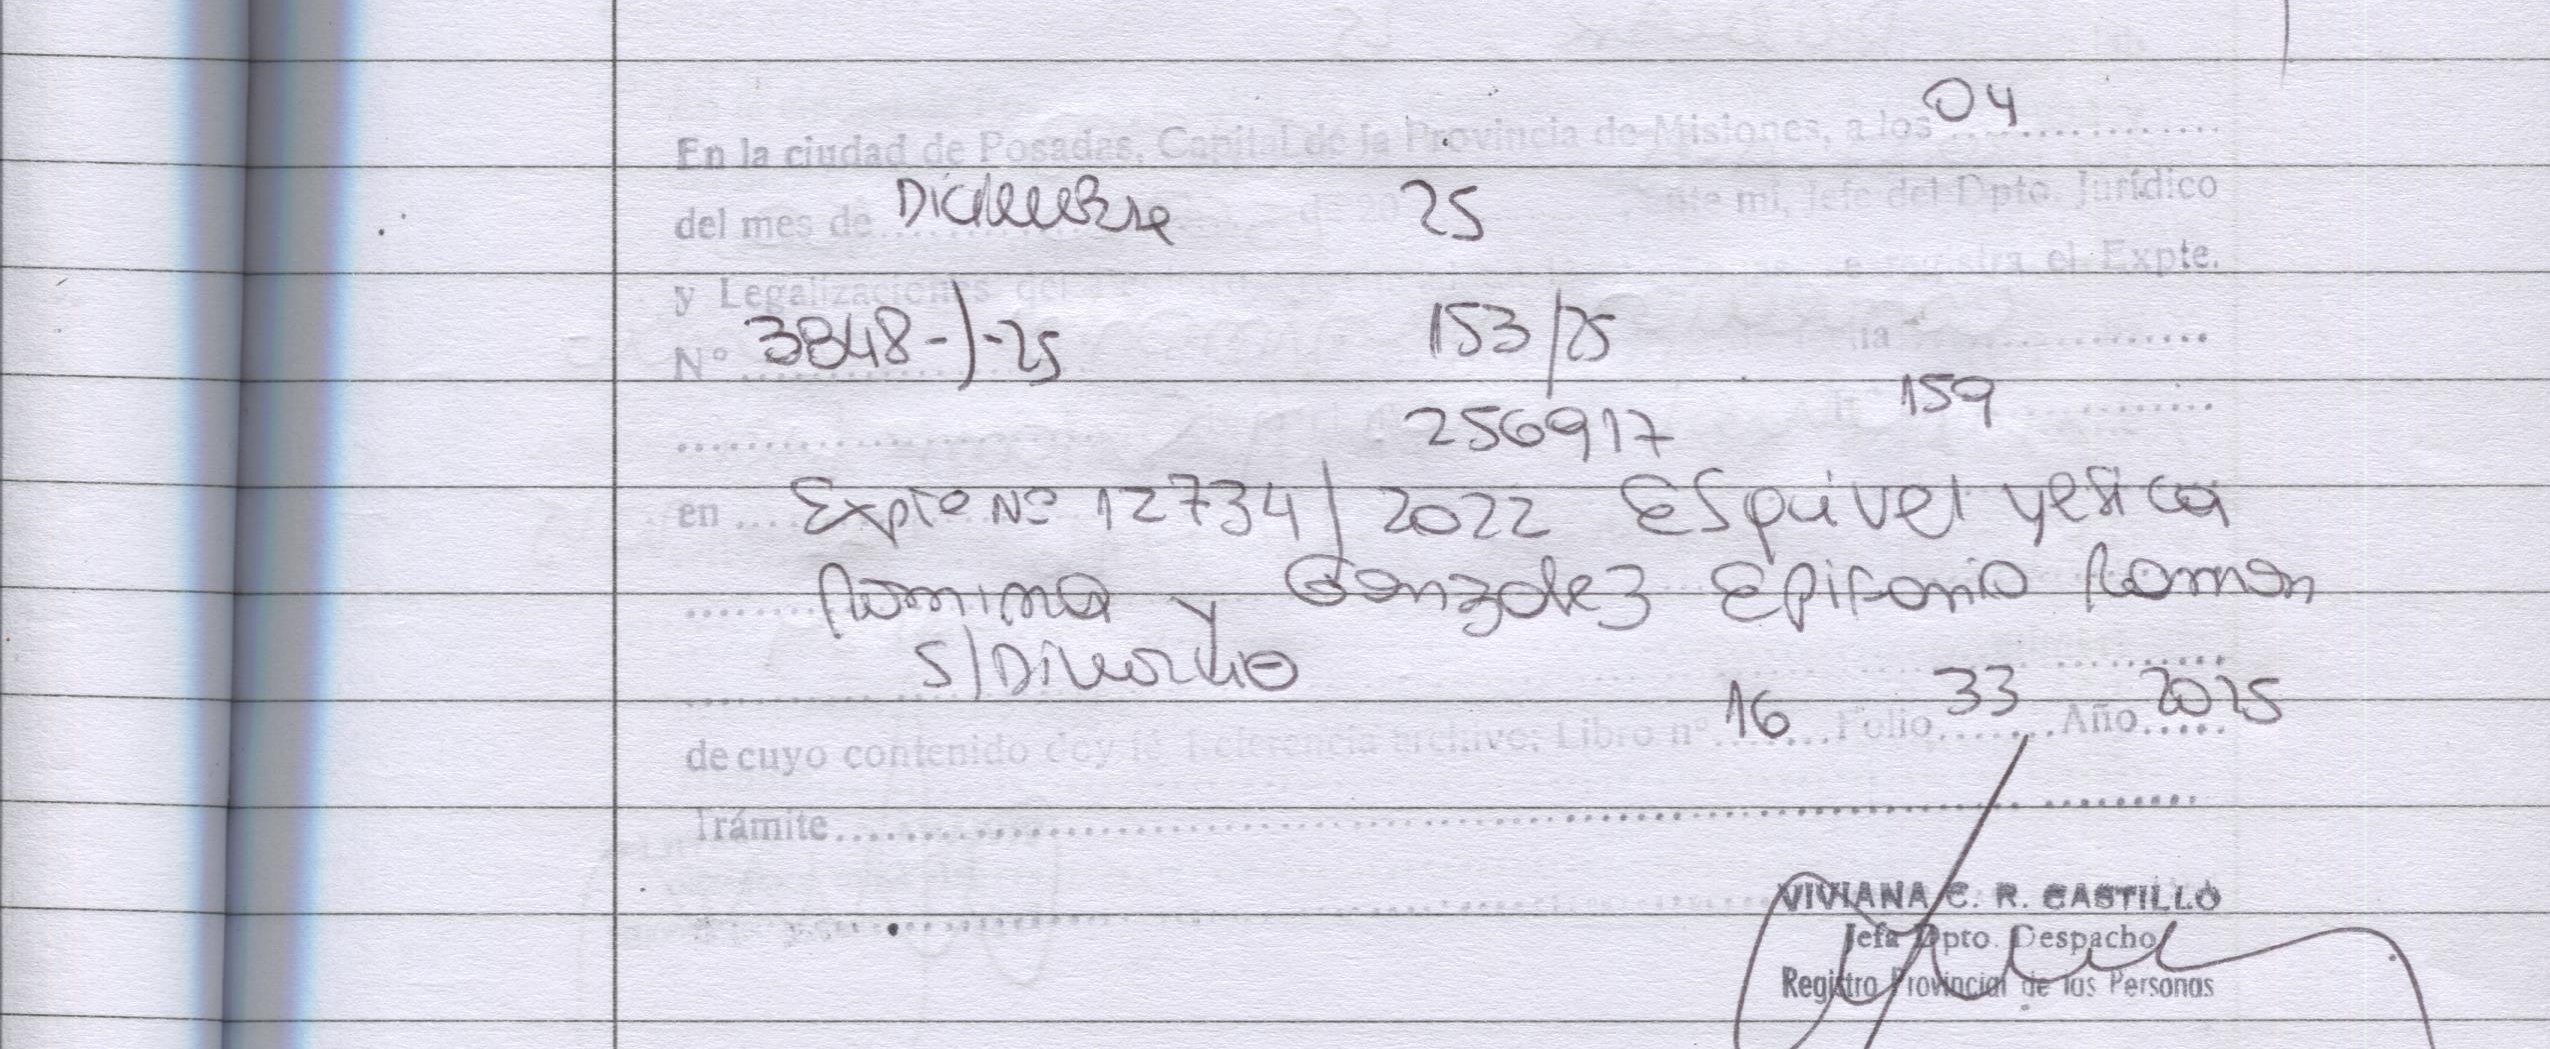 En la ciudad de Posadas, Capital de la Provincia de Misiones, a los 04
del mes de Diciembre 25 ante mi, Jefe del Dpto. Jurídico
y Legalizaciones del se registra el Expte.
Nº 3848-)-25 153/25
256917 159
en Expte Nº 12734/2022 Esquivel Yesica
Romina y Gonzalez Epifanio Roman
S/Divorcio
de cuyo contenido doy fé. Referencia archivo: Libro nº 16 Folio 33 Año 2025
Trámite
VIVIANA C. R. CASTILLO
Jefa Dpto. Despacho
Registro Provincial de las Personas